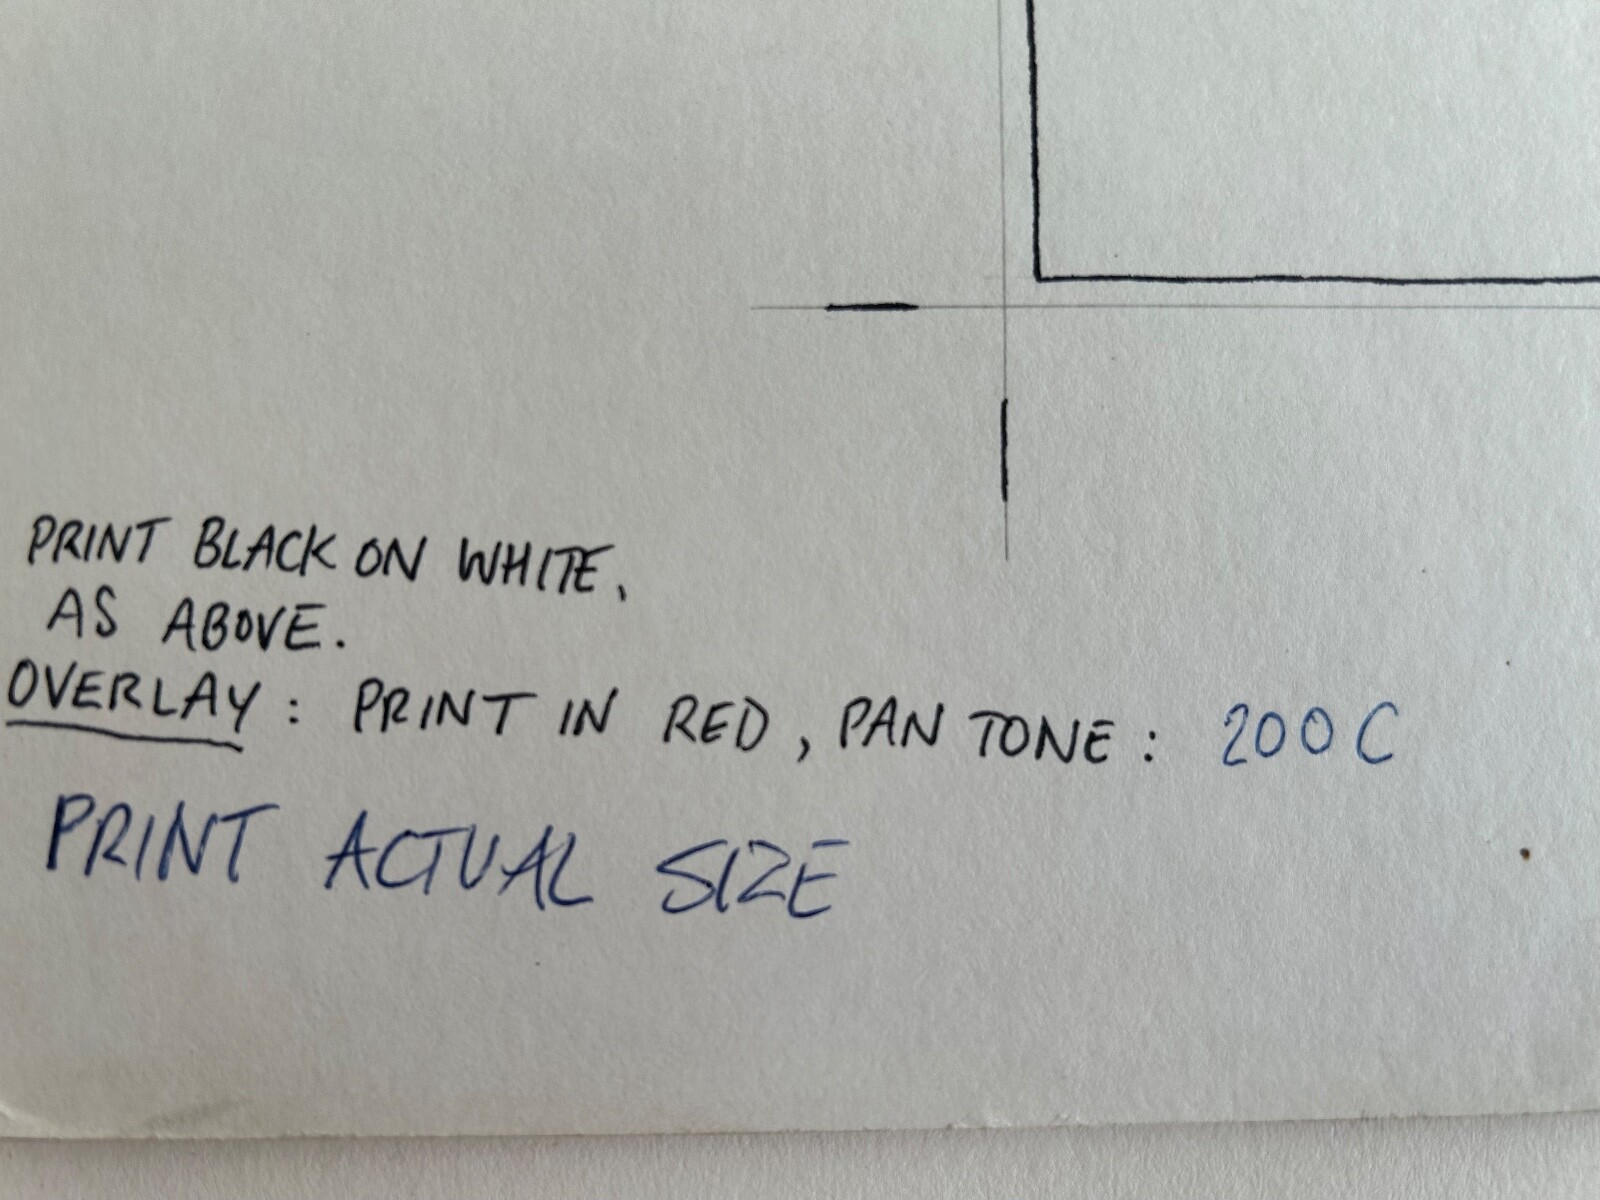 PRINT BLACK ON WHITE.
AS ABOVE.
OVERLAY: PRINT IN RED, PAN TONE: 200 C
PRINT ACTUAL SIZE